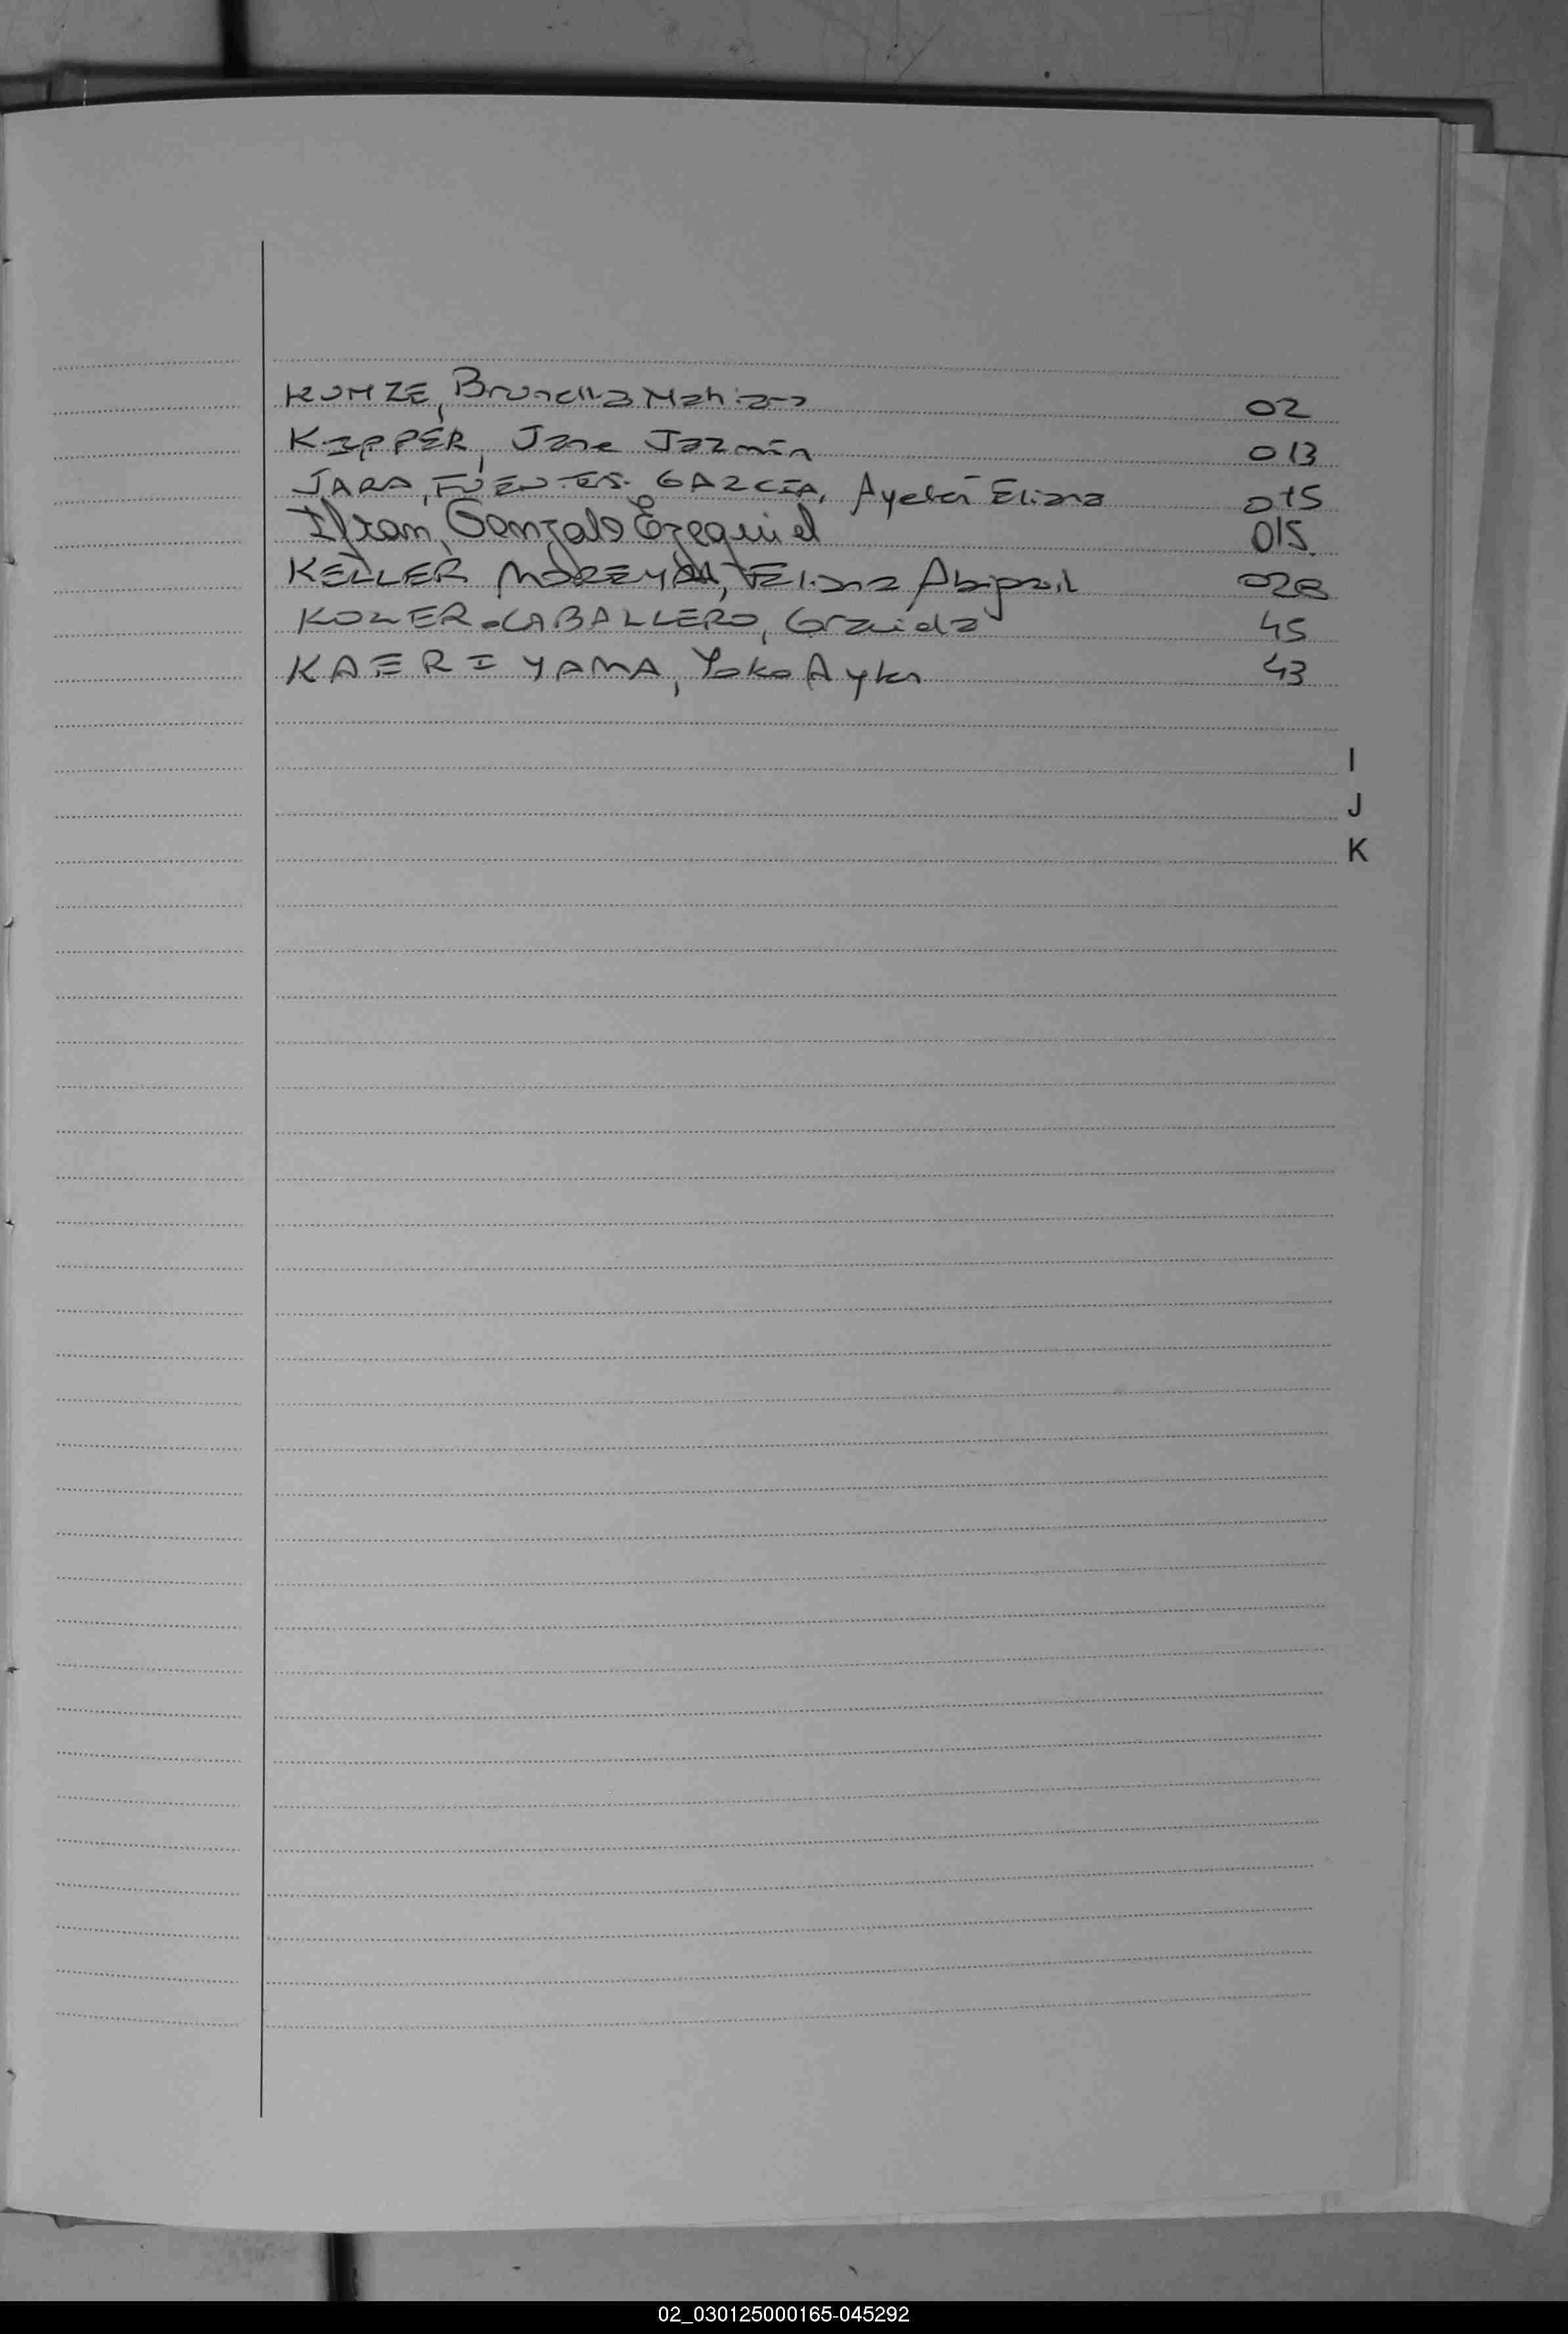 KUMZE, Brunella Mahiara 02
KIPPER, Jane Jazmín 013
JARA, FUENTES GARCÍA, Ayelén Eliana 015
Ifran, Gonzalo Ezequiel 015
KELLER Eliana Abigail 028
KOLER CABALLERO, Graciela 45
KAERIYAMA, Yoko Ayka 43
I
J
K
02_030125000165-045292